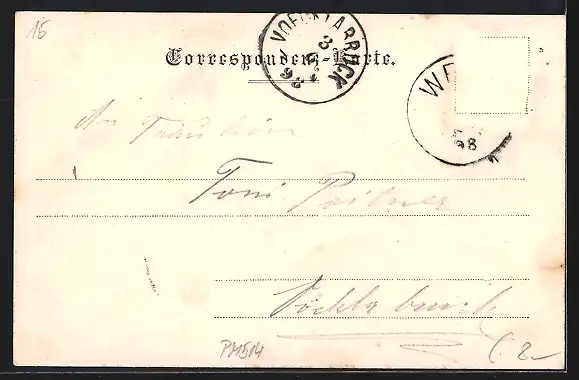 15
Correspondenz-Karte.
VOECKLABRUCK
3
98
WE
98
An Fräulein
Toni Poitner
Vöcklabruck
PM514
8.-